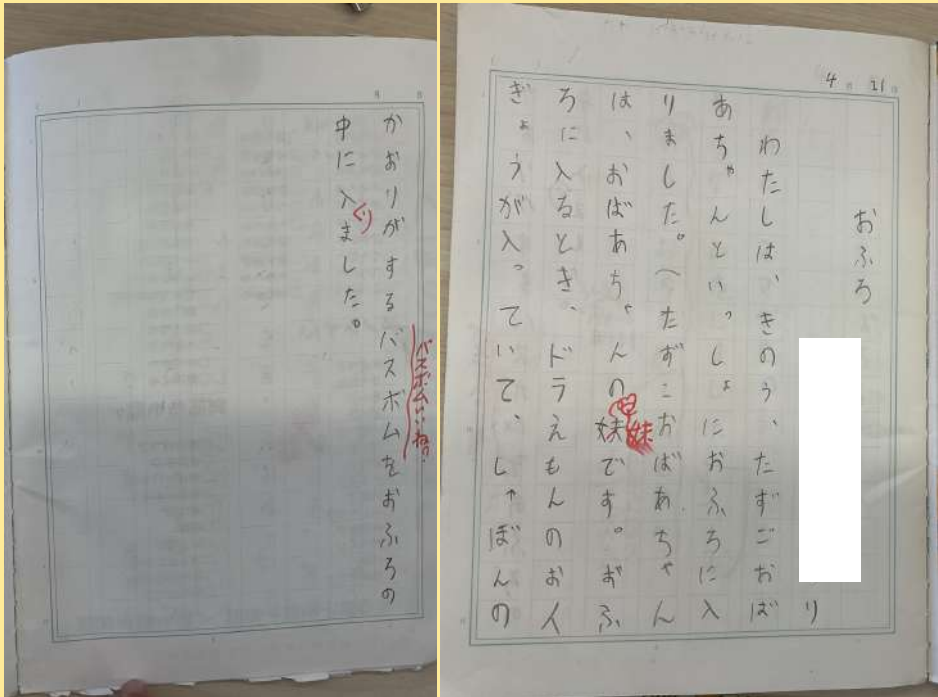 4月21日
おふろ
り
わたしは、きのう、たずごおば
あちゃんといっしょにおふろに入
りました。(たずこおばあちゃん
は、おばあちゃんの妹です。おふ
ろに入るとき、ドラえもんのお人
ぎょうが入っていて、しゃぼんの
妹
月 日
かおりがするバスボムをおふろの
中に入ました。
り
バスボムいいねっ。